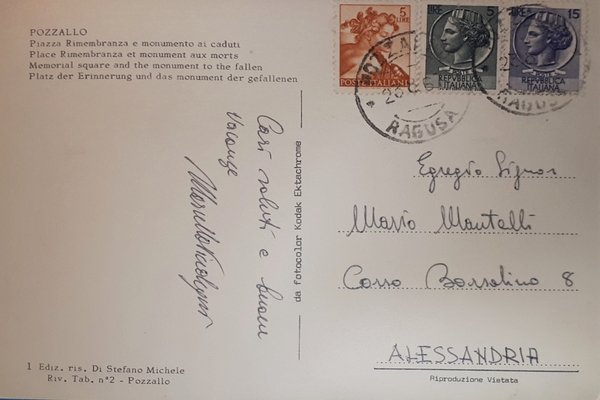 POZZALLO
Piazza Rimembranza e monumento ai caduti
Place Rimembranza et monument aux morts
Memorial square and the monument to the fallen
Platz der Erinnerung und das monument der gefallenen
5 LIRE
POSTE ITALIANE
REPVBBLICA
ITALIANA
15
REPVBBLICA
ITALIANA
RAGUSA
RAGUSA
Cari saluti e buone
Vacanze
da fotocolor Kodak Ektachrome
Egregio Signor
Mario Mantelli
Corso Borsalino 8
ALESSANDRIA
Riproduzione Vietata
1 Ediz. ris. Di Stefano Michele
Riv. Tab. n°2 - Pozzallo